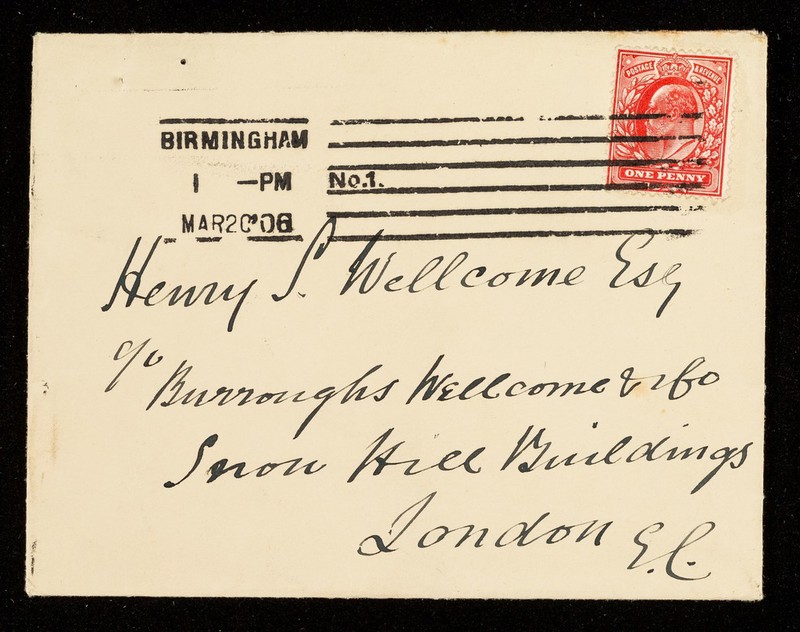 POSTAGE & REVENUE
ONE PENNY
BIRMINGHAM
1 —PM No.1.
MAR20'06
Henry S. Wellcome Esq
c/o
Burroughs Wellcome & Co
Snow Hill Buildings
London E.C.